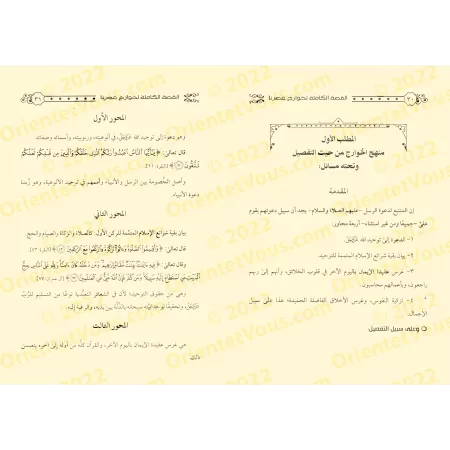 ٣٠
القصة الكاملة لخوارج عصرنا
المطلب الأول
منهج الخوارج من حيث التفصيل
وتحته مسائل:
المقدمة
إن المتتبع لدعوة الرسل -عليهم الصلاة والسلام- يجد أن سبيل دعوتهم يقوم
على -جميعًا ومن غير استثناء- أربعة محاور:
١- الدعوة إلى توحيد الله
٢- بيان بقية شرائع الإسلام المتممة للتوحيد.
٣- غرس عقيدة الإيمان باليوم الآخر في قلوب الخلائق، وأنهم إلى ربهم
راجعون وبأعمالهم محاسبون.
٤- تزكية النفوس، وغرس الأخلاق الفاضلة الحميدة؛ هذا على سبيل
الإجمال.
وعلى سبيل التفصيل
القصة الكاملة لخوارج عصرنا
٣١
المحور الأول
وهو دعوة إلى توحيد الله في ألوهيته، وربوبيته، وأسمائه وصفاته
قال تعالى: ﴿يَتَأَيُّهَا النَّاسُ اعْبُدُوا رَبَّكُمُ الَّذِي خَلَقَكُمْ وَالَّذِينَ مِن قَبْلِكُمْ لَعَلَّكُمْ
تَتَّقُونَ﴾ [البقرة: ٢١]
وأصل الخصومة بين الرسل والأنبياء وأممهم في توحيد الألوهية، وهو زبدة
دعوة الأنبياء.
المحور الثاني
بيان بقية شرائع الإسلام المتممة للركن الأول: كالصلاة، والزكاة والصيام والحج.
قال تعالى: ﴿وَأَقِيمُوا الصَّلَاةَ وَآتُوا الزَّكَاةَ وَارْكَعُوا مَعَ الرَّاكِعِينَ﴾ [البقرة: ٤٣].
وقال تعالى: ﴿فِيهِ آيَاتٌ بَيِّنَاتٌ مَّقَامُ إِبْرَاهِيمَ وَمَن دَخَلَهُ كَانَ آمِنًا وَلِلَّهِ عَلَى النَّاسِ حِجُّ
الْبَيْتِ مَنِ اسْتَطَاعَ إِلَيْهِ سَبِيلًا وَمَن كَفَرَ فَإِنَّ اللَّهَ غَنِيٌّ عَنِ الْعَالَمِينَ﴾ [آل عمران: ٩٧]
وهي من حقوق التوحيد؛ لأن في الشعائر التعبدية نوعًا من التسليم للرب
المحور الثالث
هي غرس عقيدة الإيمان باليوم الآخر، والقرآن كله من أوله إلى آخره يتضمن
ذلك.
OrientetVous.com © 2022